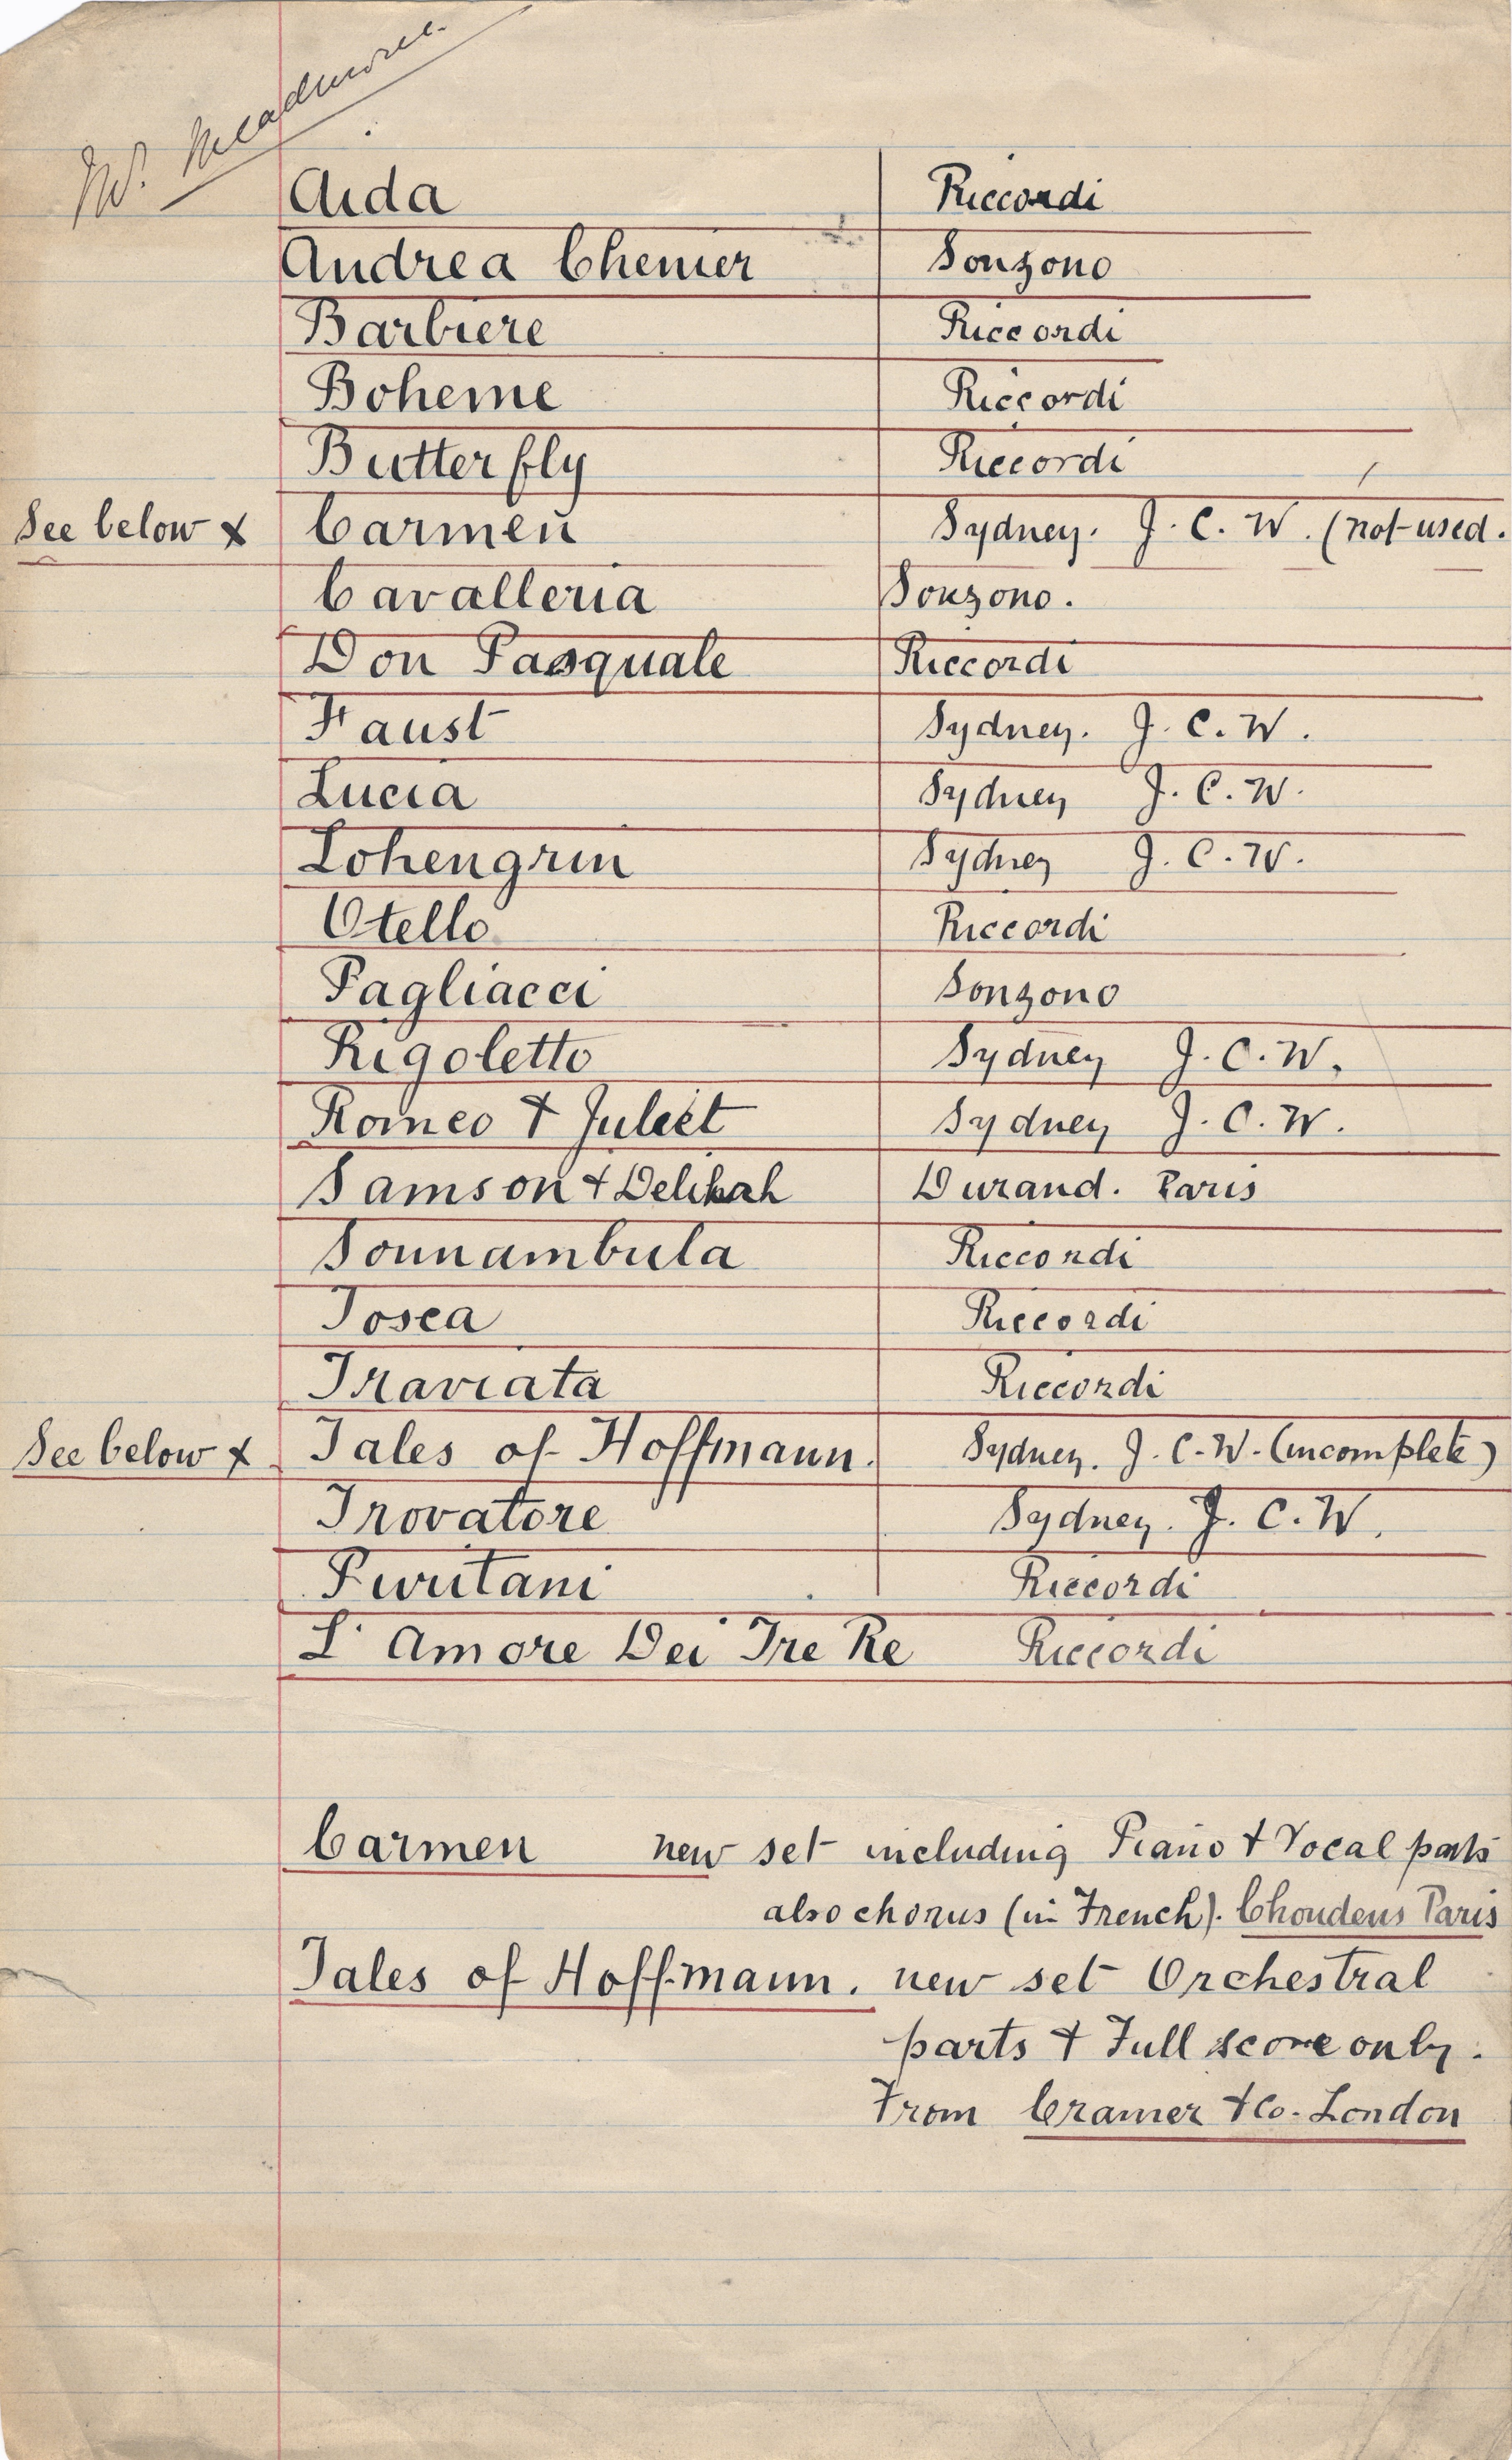 Aida Riccordi
Andrea Chenier Sonzono
Barbiere Riccordi
Boheme Riccordi
Butterfly Riccordi
See below x Carmen Sydney. J. C. W. (not used.
Cavalleria Sonzono.
Don Pasquale Riccordi
Faust Sydney. J. C. W.
Lucia Sydney J. C. W.
Lohengrin Sydney J. C. W.
Otello Riccordi
Pagliacci Sonzono
Rigoletto Sydney J. C. W.
Romeo & Juleet Sydney J. C. W.
Samson & Delilah Durand. Paris
Sonnambula Riccordi
Tosca Riccordi
Traviata Riccordi
See below x Tales of Hoffmann. Sydney. J. C. W. (incomplete)
Trovatore Sydney. J. C. W.
Puritani Riccordi
L' Amore Dei Tre Re Riccordi
Carmen new set including Piano & Vocal parts
also chorus (in French). Choudens Paris
Tales of Hoffmann. new set Orchestral
parts & Full score only.
From Cramer & Co. London